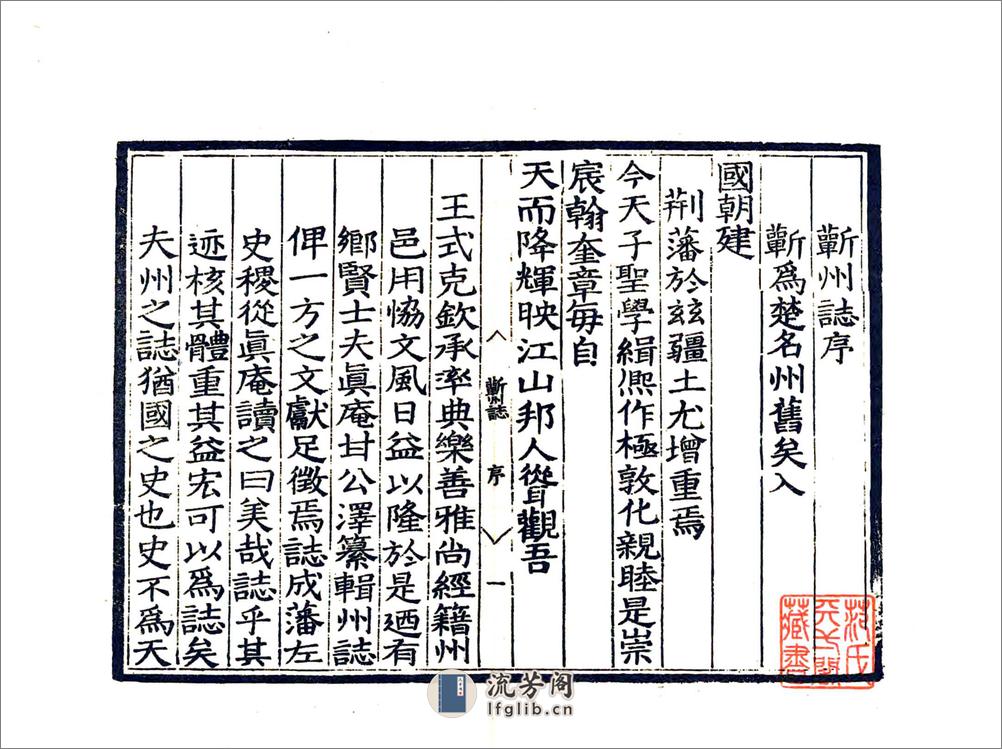 蘄州誌序
蘄爲楚名州舊矣入
國朝建
荆藩於玆疆土尤增重焉
今天子聖學緝熈作極敦化親睦是崇
宸翰奎章每自
天而降輝映江山邦人聳觀吾
蘄州誌
序
一
王式克欽承率典樂善雅尚經籍州
邑用恊文風日益以隆於是廼有
鄉賢士夫眞庵甘公澤纂輯州誌
俾一方之文獻足徵焉誌成藩左
史稷從眞庵讀之曰美哉誌乎其
迹核其體重其益宏可以爲誌矣
夫州之誌猶國之史也史不爲天
范氏
天一閣
藏書
流芳阁
lfglib.cn